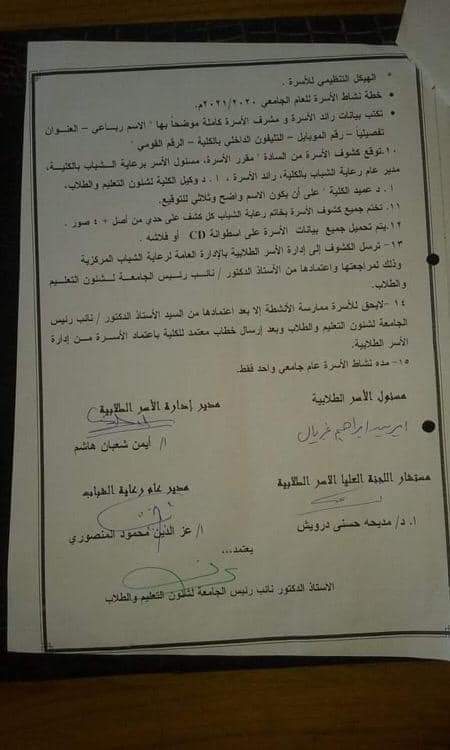 * الهيكل التنظيمي للأسرة .
* خطة نشاط الأسرة للعام الجامعي ٢٠٢١/٢٠٢٠م.
* تكتب بيانات رائد الأسرة و مشرف الأسرة كاملة موضحاً بها " الاسم رباعى – العنوان
تفصيلياً – رقم الموبايل – التليفون الداخلي بالكلية – الرقم القومي "
١٠.توقع كشوف الأسرة من السادة " مقرر الأسرة، مسئول الأسر برعاية الشباب بالكلية،
مدير عام رعاية الشباب بالكلية، رائد الأسرة ، ا . د وكيل الكلية لشئون التعليم والطلاب،
ا . د عميد الكلية " على أن يكون الاسم واضح وثلاثي للتوقيع.
١١. تختم جميع كشوف الأسرة بخاتم رعاية الشباب كل كشف على حدي من أصل + ٤ صور .
١٢.يتم تحميل جميع بيانات الأسرة على اسطوانة CD أو فلاشه .
١٣- ترسل الكشوف إلى إدارة الأسر الطلابية بالإدارة العامة لرعاية الشباب المركزية
وذلك لمراجعتها واعتمادها من الأستاذ الدكتور / نائب رئيس الجامعة لشئون التعليم
والطلاب.
١٤ – لايحق للأسرة ممارسة الأنشطة إلا بعد اعتمادها من السيد الأستاذ الدكتور / نائب رئيس
الجامعة لشئون التعليم والطلاب وبعد إرسال خطاب معتمد للكلية باعتماد الأسرة من إدارة
الأسر الطلابية.
١٥- مده نشاط الأسرة عام جامعي واحد فقط.
مسئول الأسر الطلابية
مدير إدارة الأسر الطلابية
ابراهيم غريال
ا/ أيمن شعبان هاشم
مستشار اللجنة العليا الاسر الطلابية
مدير عام رعاية الشباب
ا. د/ مديحه حسنى درويش
ا/ عز الدين محمود المنصوري
يعتمد...
الاستاذ الدكتور نائب رئيس الجامعة لشئون التعليم والطلاب